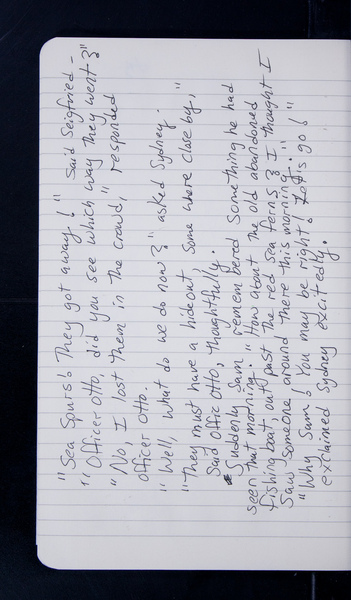 "Sea Spurs! They got away!" Said Seigfried-
"Officer Otto, did you see which way they went?"
"No, I lost them in the crowd," responded
officer Otto.
"Well, what do we do now?" asked Sydney.
"They must have a hideout, Some where close by,"
Said Offic Otto, thoughtfully.
Suddenly Sam remembered Something he had
seen that morning. "How about the old abandoned
fishing boat, out past the red sea ferns? I thought I
Saw someone around there this morning."
"Why Sam! You may be right! Let's go!"
exclaimed Sydney excitedly.